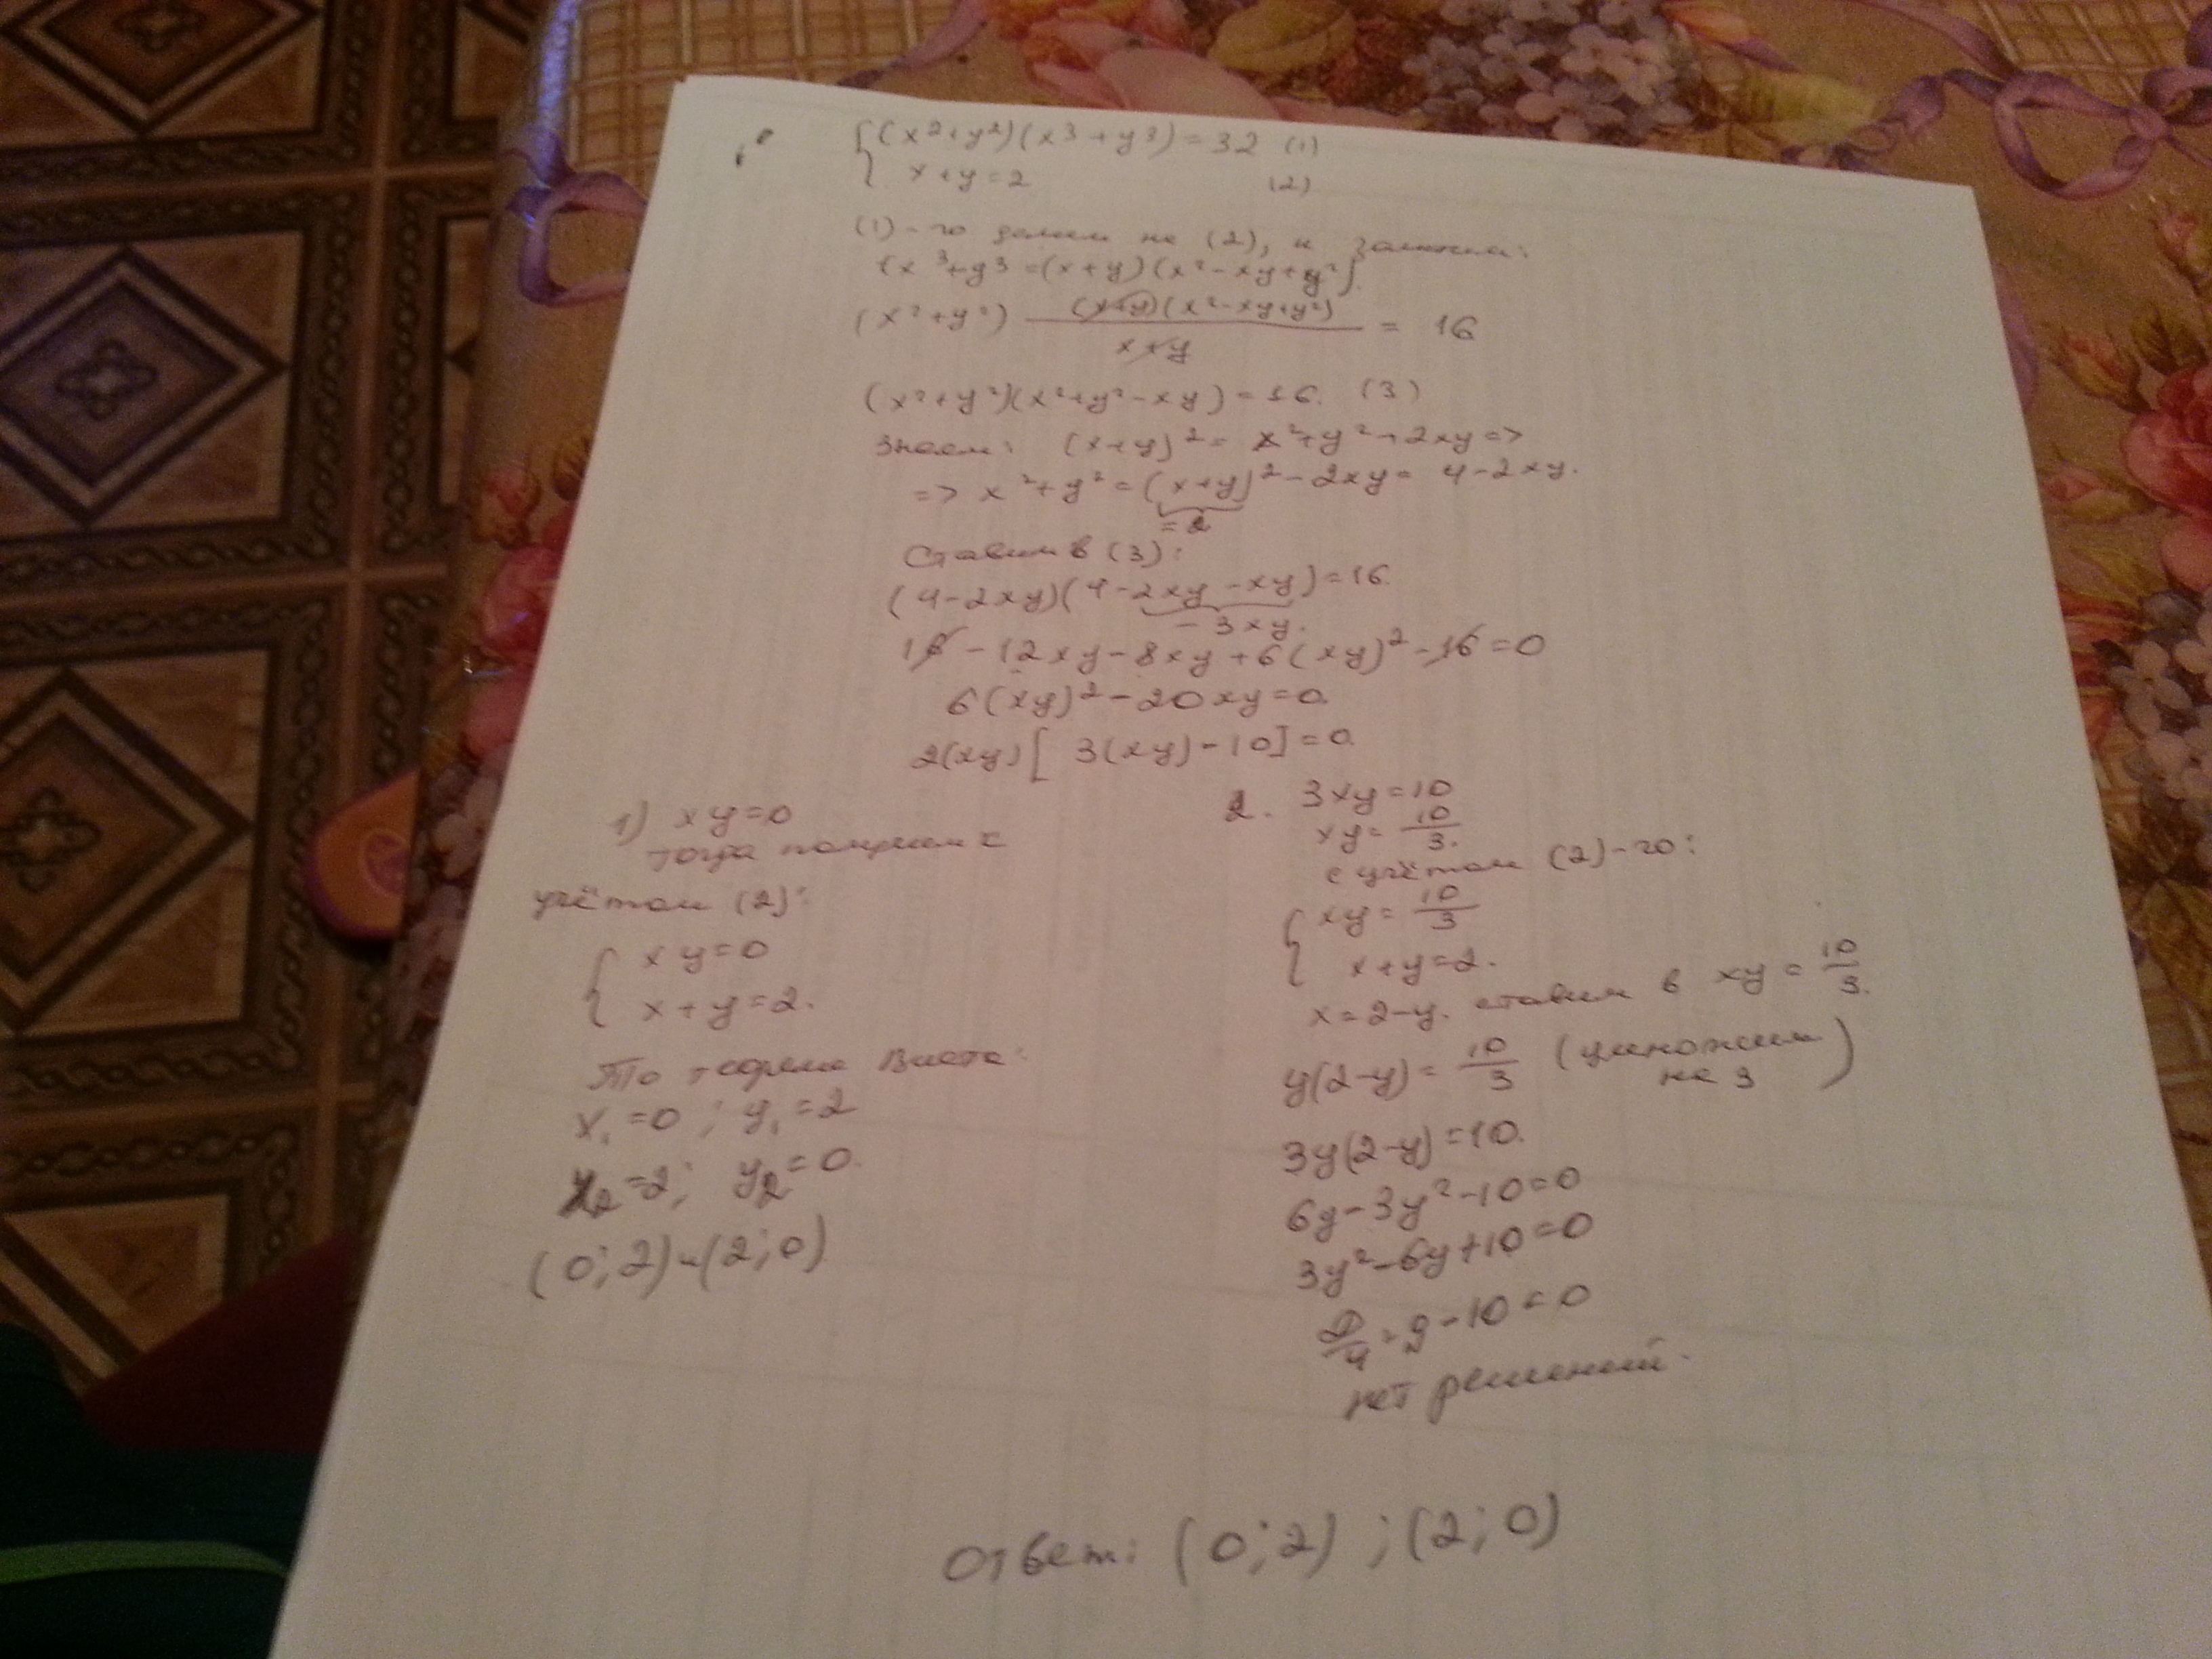 { (x²+y²)(x³+y³)=32 (1)
x+y=2 (2)
(1)-го делим на (2), и
(x³+y³=(x+y)(x²-xy+y²)
(x²+y²) (x+y)(x²-xy+y²) / x+y = 16
(x²+y²)(x²+y²-xy)=16. (3)
Знаем: (x+y)²= x²+y²+2xy =>
=> x²+y²=(x+y)²-2xy= 4-2xy.
=2
Ставим в (3):
(4-2xy)(4-2xy-xy)=16.
-3xy.
16-12xy-8xy+6(xy)²-16=0
6(xy)²-20xy=0.
2(xy)[ 3(xy)-10]=0.
1) xy=0
тогда с
учётом (2):
{ xy=0
x+y=2.
По теореме Виета:
x₁=0; y₁=2
x₂=2; y₂=0.
(0;2)-(2;0)
2. 3xy=10
xy= 10/3.
с учётом (2)-го:
{ xy= 10/3
x+y=2.
x=2-y. ставим в xy= 10/3.
y(2-y)= 10/3 (умножим
на 3)
3y(2-y)=10.
6y-3y²-10=0
3y²-6y+10=0
D/4=9-10=0
нет решений.
Ответ: (0;2) ; (2;0)